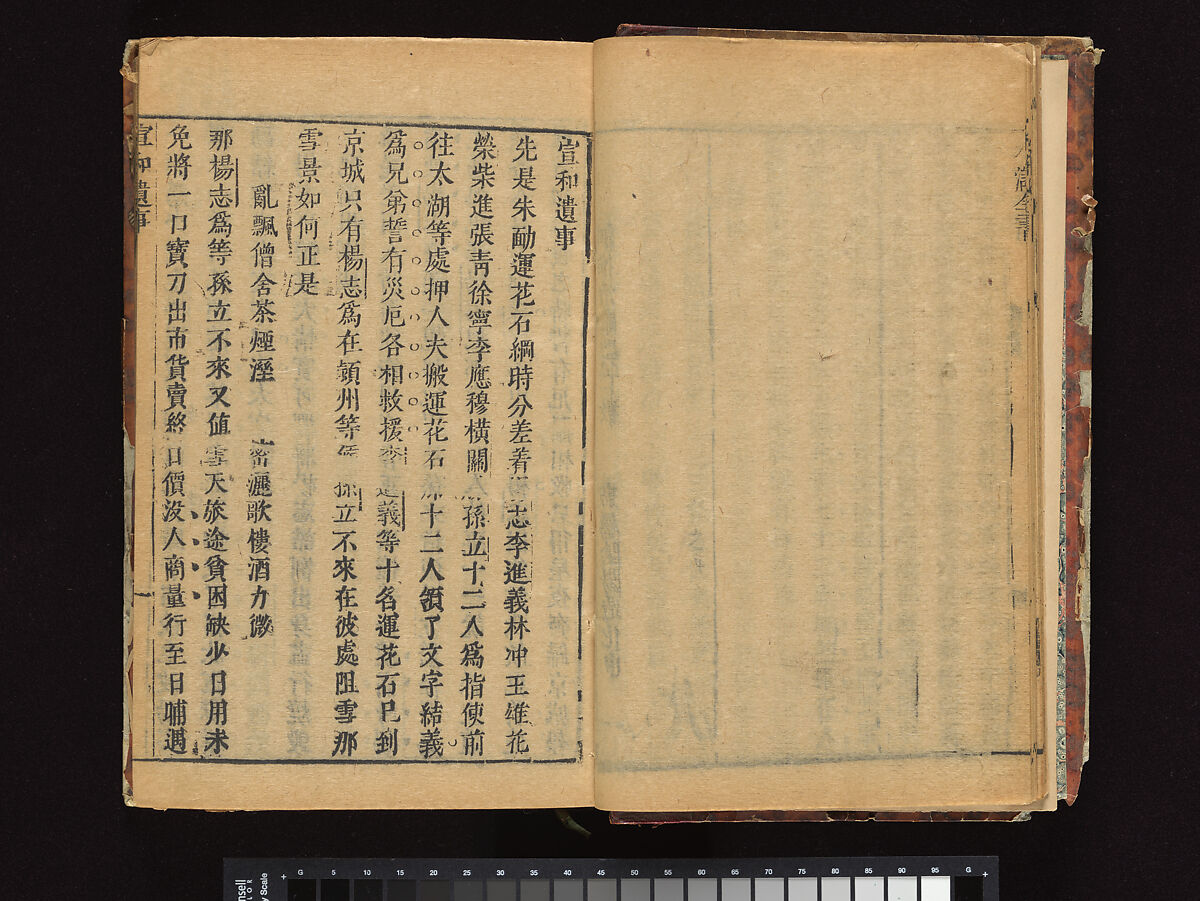 宣和遺事
先是朱勔運花石綱時分差着楊志李進義林冲王雄花
榮柴進張青徐寧李應穆橫關 孫立十二人爲指使前
往太湖等處押人夫搬運花石 十二人領了文字結義
爲兄弟誓有災厄各相救援李進義等十名運花石已到
京城只有楊志爲在頴州等 孫立不來在彼處阻雪那
雪景如何正是
亂飄僧舍茶煙溼 密灑歌樓酒力微
那楊志爲等孫立不來又値雪天旅途貧困缺少日用未
免將一口寶刀出市貨賣終日價没人商量行至日晡遇
宣和遺事
一
全書
G 5 10 15 20 25 30 35 40 45 50 55 60 65 70 75 80 85 90 95 G